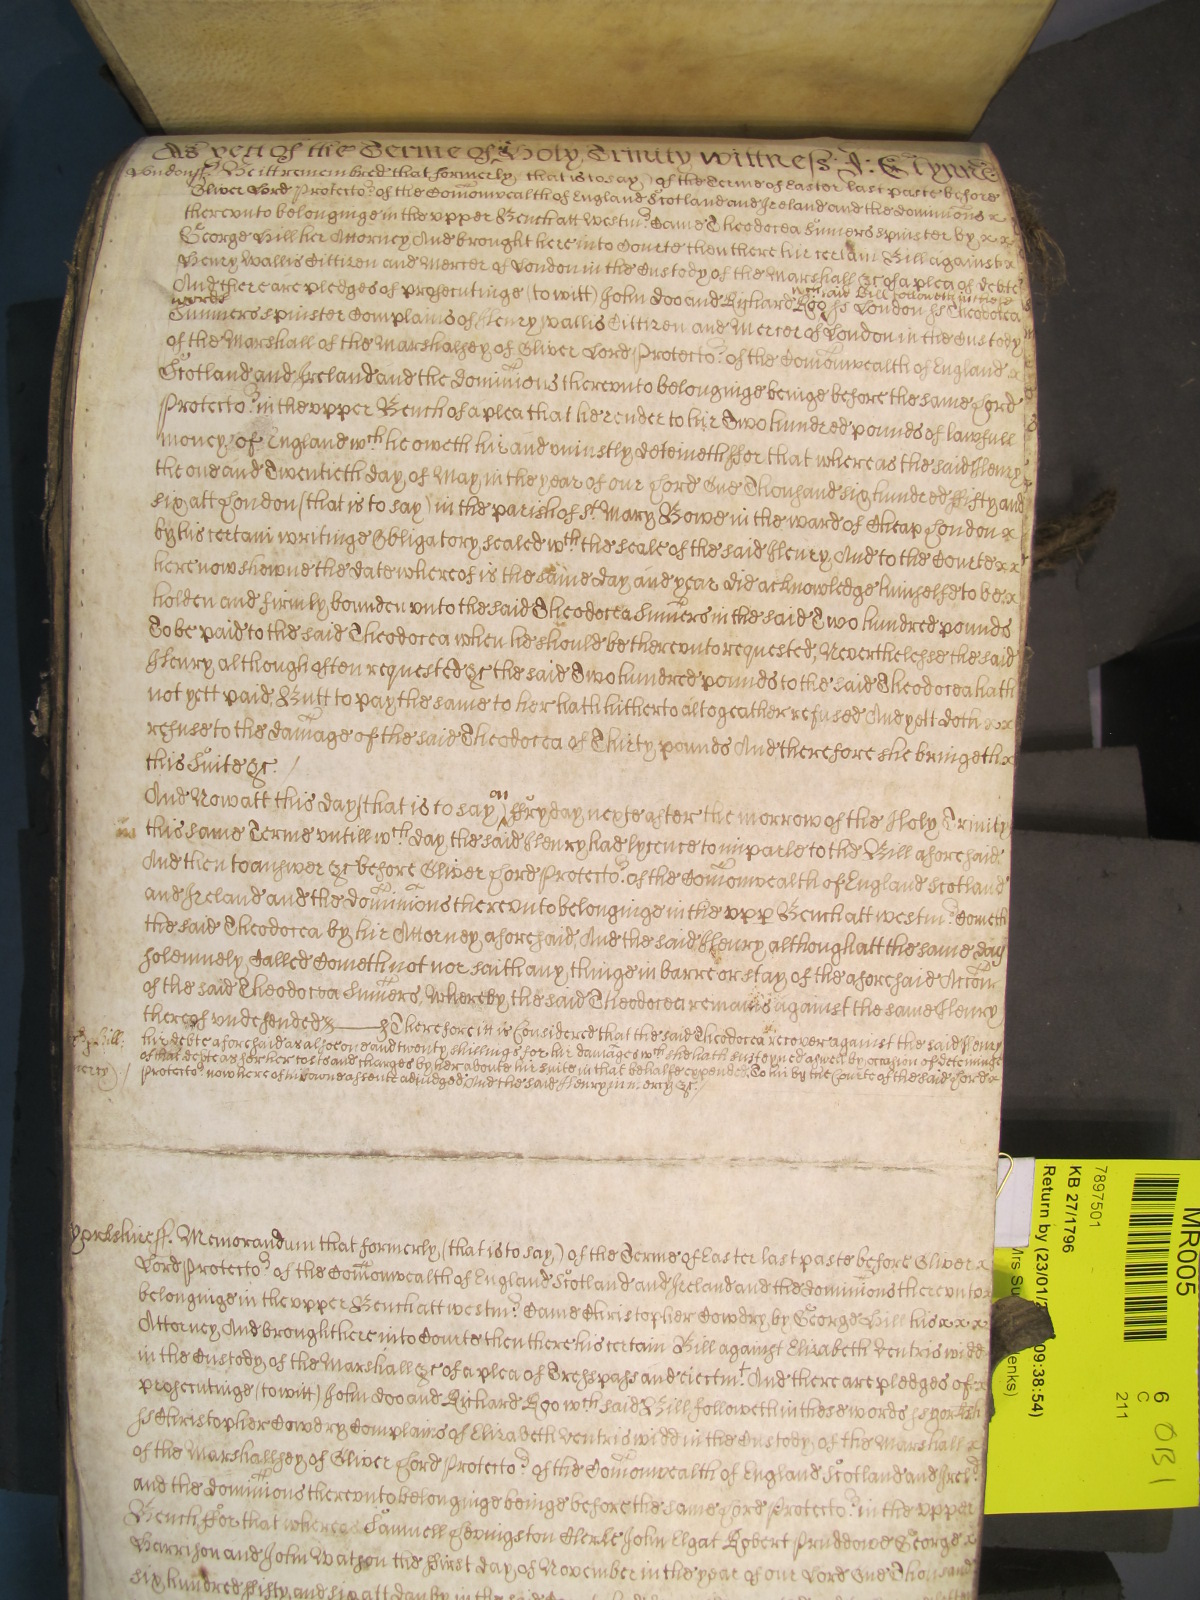 As yett of the Terme of Holy Trinity Wittnes J: Glynne
London ss. Be itt remembred that formerly (that is to say) of the Terme of Easter last paste before
Oliver Lord Protector of the Comonwealth of England Scotland and Ireland and the dominions x
therevnto belonginge in the vpper Bench att Westmr Came Theodocea Sumers spinster by x x
George Hill her Attorney And brought here into Courte then there hir certain Bill against x
Henry Wallis Cittizen and Mercer of London in the Custody of the Marshall &c of a plea of debte
And there are pledges of prosecutinge (to witt) John Doo and Richard Roo wch said Bill followeth in these
words ss London ss Theodocea
Sumers spinster Complains of Henry Wallis Cittizen and Mercer of London in the Custody
of the Marshall of the Marshallsey of Oliver Lord Protector of the Comonwealth of England x
Scotland and Ireland and the dominions therevnto belonginge beinge before the same Lord
Protector in the vpper Bench of a plea that he render to hir Two hundred pounds of lawfull
money of England wch he oweth hir and vniustly deteineth ffor that whereas the said Henry
the one and Twentieth day of May in the year of our Lord One Thousand six hundred ffifty and
six att London (that is to say) in the parish of St Mary Bowe in the ward of Cheap London x
by his certain writinge Obligatory sealed wth the seale of the said Henry And to the Courte x x
here now shewne the date whereof is the same day and year did acknowledge himselfe to be x
holden and firmly bounden vnto the said Theodocea Sumers in the said Two hundred pounds
To be paid to the said Theodocea when he should be therevnto requested, Neverthelesse the said
Henry although often requested &c the said Two hundred pounds to the said Theodocea hath
not yett paid, Butt to pay the same to her hath hitherto altogeather refused And yett doth x x
refuse to the damage of the said Theodocea of Thirty pounds And therefore she bringeth x
this Suite &c. /
And Now att this day (that is to say) on ffryday nexte after the morrow of the Holy Trinity
this same Terme vntill wch day the said Henry had lycence to imparle to the Bill aforesaid
And then to answer &c before Oliver Lord Protector of the Comonwealth of England Scotland
and Ireland and the dominions therevnto belonginge in the vpp Bench att Westmr Cometh
the said Theodocea by hir Attorney aforesaid, And the said Henry although att the same day
solemnely Called Cometh not nor saith any thinge in barre or stay of the aforesaid Accon
of the said Theodocea Sumers, Whereby the said Theodocea remains against the same Henry
thereof vndefended &c Therefore itt is Considered that the said Theodocea recover against the said Henry
hir debte aforesaid as alsoe one and twenty shillings for hir damages wch she hath susteyned aswell by occasion of deteininge
of that debte as for her costs and charges by her aboute hir suite in that behalfe expended, To hir by the Courte of the said Lord x
Protector now here of hir owne assente adiudged And the said Henry in mercy &c. /
Bill:
mercy) /
Yorkshire ss. Memorandum that formerly, (that is to say,) of the Terme of Easter last paste before Oliver x
Lord Protector of the Comonwealth of England Scotland and Ireland and the dominions therevnto x
belonginge in the vpper Bench att Westmr Came Christopher Cowdry by George Hill his x x x
Attorney And brought here into Courte then there his certain Bill against Elizabeth Ventris widd
in the Custody of the Marshall &c of a plea of Trespass and eiectmt And there are pledges of x
prosecutinge (to witt) John Doo and Richard Roo wch said Bill followeth in these words ss Yorksh
ss Christopher Cowdry Complains of Elizabeth Ventris widd in the Custody of the Marshall x
of the Marshallsey of Oliver Lord Protector of the Comonwealth of England Scotland and Irel
and the dominions therevnto belonginge beinge before the same Lord Protector in the vpper
Bench ffor that whereas Samuell Clerke John Elgat Robert Pruddowe George x
Harrison and John Watson the first day of November in the year of our Lord One Thousand
six hundred ffifty and six att in the said
MR005
7897501
KB 27/1796
Return by (23/01/2 09:38:54)
Mrs Su enks)
6
C
211